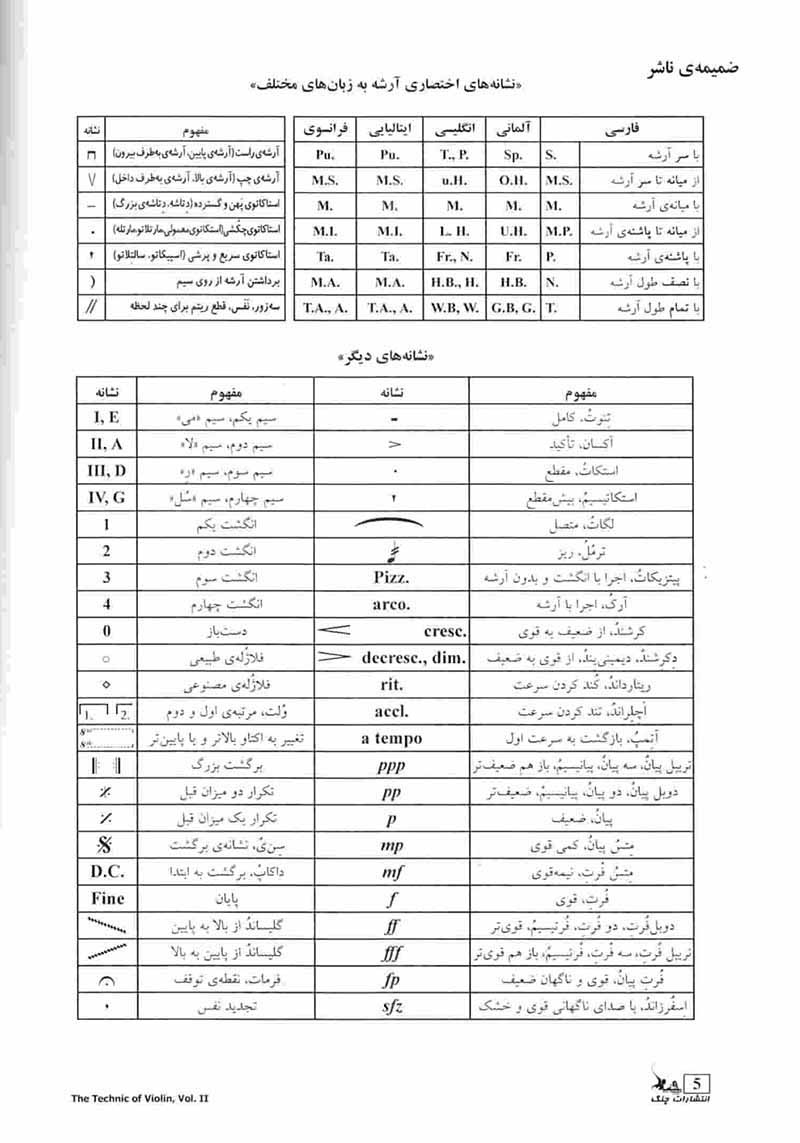 ضمیمه‌ی ناشر
«نشانه‌های اختصاری آرشه به زبان‌های مختلف»
فارسی | آلمانی | انگلیسی | ایتالیایی | فرانسوی
با سر آرشه | S. | Sp. | T., P. | Pu. | Pu.
از میانه تا سر آرشه | M.S. | O.H. | u.H. | M.S. | M.S.
با میانه‌ی آرشه | M. | M. | M. | M. | M.
از میانه تا پاشنه‌ی آرشه | M.P. | U.H. | L. H. | M.I. | M.I.
با پاشنه‌ی آرشه | P. | Fr. | Fr., N. | Ta. | Ta.
با نصف طول آرشه | N. | H.B. | H.B., H. | M.A. | M.A.
با تمام طول آرشه | T. | G.B, G. | W.B, W. | T.A., A. | T.A., A.
مفهوم | نشانه
آرشه‌ی راست (آرشه‌ی پایین، آرشه‌ی به‌طرف بیرون) | ⊓
آرشه‌ی چپ (آرشه‌ی بالا، آرشه‌ی به‌طرف داخل) | V
استاکاتوی پهن و گسترده (دِتاشه، دِتاشه‌ی بزرگ) | –
استاکاتوی چکُشی (استکاتوی معمولی، مارتلاتو، مارتله) | .
استاکاتوی سریع و پرشی (اسپیکاتو، سالتلاتو) | ▾
برداشتن آرشه از روی سیم | )
سه‌زور، نَفَس، قطع ریتم برای چند لحظه | //
«نشانه‌های دیگر»
مفهوم | نشانه | مفهوم | نشانه
تِنوتُ، کامل | - | سیم یکم، سیم «می» | I, E
آکسان، تأکید | > | سیم دوم، سیم «لا» | II, A
استکاتُ، مقطع | . | سیم سوم، سیم «رِ» | III, D
استکاتیسیمُ، بیش‌مقطع | ▾ | سیم چهارم، سیم «سُل» | IV, G
لگاتُ، متصل | انگشت یکم | 1
ترمُلُ، ریز | انگشت دوم | 2
پیتزیکاتُ، اجرا با انگشت و بدون آرشه | Pizz. | انگشت سوم | 3
آرکُ، اجرا با آرشه | arco. | انگشت چهارم | 4
کرشندُ، از ضعیف به قوی | cresc. < | دست‌باز | 0
دِکرشندُ، دیمینی‌یندُ، از قوی به ضعیف | decresc., dim. > | فلاژُله‌ی طبیعی | ○
ریتارداندُ، کُند کردن سرعت | rit. | فلاژُله‌ی مصنوعی | ◇
آچلِراندُ، تند کردن سرعت | accl. | وُلت، مرتبه‌ی اول و دوم | 1. 2.
آتِمپُ، بازگشت به سرعت اول | a tempo | تغییر به اکتاو بالاتر و یا پایین‌تر | 8va 8va
تریپل پیانُ، سه پیانُ، پیانیسیمُ، باز هم ضعیف‌تر | ppp | برگشت بزرگ | 𝄆 𝄇
دوبل پیانُ، دو پیانُ، پیانیسیمُ، ضعیف‌تر | pp | تکرار دو میزان قبل | 𝄏
پیانُ، ضعیف | p | تکرار یک میزان قبل | 𝄎
مِتسُ پیانُ، کمی قوی | mp | سِن‌یُ، نشانه‌ی برگشت | 𝄋
مِتسُ فُرتِ، نیمه‌قوی | mf | داکاپُ، برگشت به ابتدا | D.C.
فُرتِ، قوی | f | پایان | Fine
دوبل‌فُرتِ، دو فُرتِ، فُرتیسیمُ، قوی‌تر | ff | گلیساندُ از بالا به پایین
تریپل فُرتِ، سه فُرتِ، فُرتیسیمُ، باز هم قوی‌تر | fff | گلیساندُ از پایین به بالا
فُرتِ پیانُ، قوی و ناگهان ضعیف | fp | فرمات، نقطه‌ی توقف | 𝄐
اِسفُرزاندُ، با صدای ناگهانی قوی و خشک | sfz | تجدید نفس | ,
The Technic of Violin, Vol. II
5
انتشارات چنگ